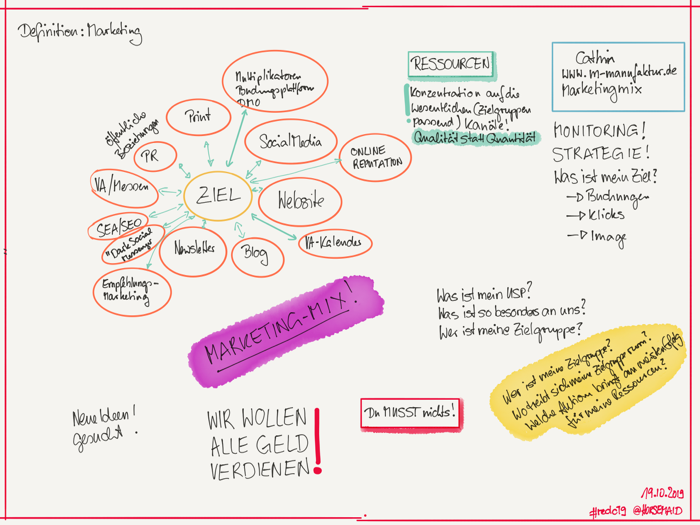 Definition: Marketing
Multiplikatoren
Buchungsplattform
DMO
Print
Öffentliche
Beziehungen
PR
Social Media
ONLINE
REPUTATION
VA/Messen
ZIEL
Website
SEA/SEO
"Dark Social
Messenger
Newsletter
Blog
VA-Kalender
Empfehlungs-
Marketing
RESSOURCEN
Konzentration auf die
wesentlichen (Zielgruppen
passend) Kanäle!
Qualität statt Quantität
Cathrin
www.m-manufaktur.de
Marketingmix
MONITORING!
STRATEGIE!
Was ist mein Ziel?
→ Buchungen
→ Klicks
→ Image
MARKETING-MIX!
Was ist mein USP?
Was ist so besonders an uns?
Wer ist meine Zielgruppe?
Wer ist meine Zielgruppe?
Wo treibt sich meine Zielgruppe rum?
Welche Aktion bringt am meisten Erfolg
für meine Ressourcen?
Neue Ideen
gesucht!
WIR WOLLEN
ALLE GELD
VERDIENEN!
Du MUSST nichts!
19.10.2019